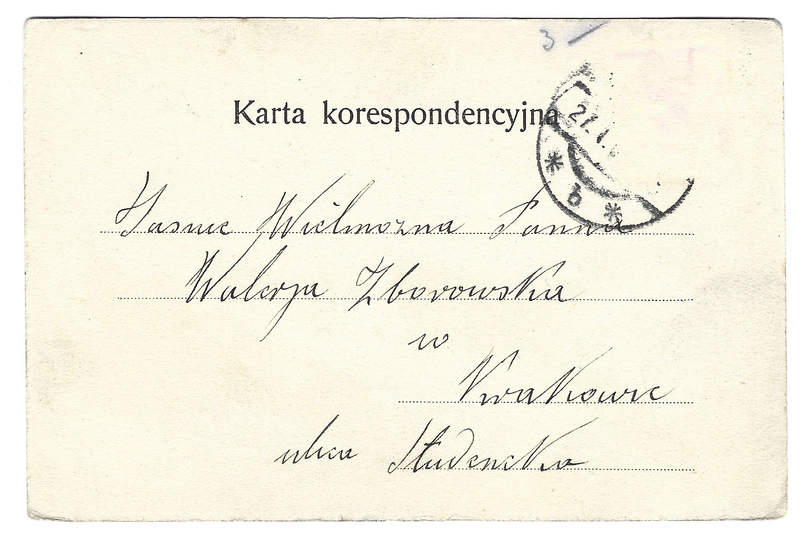 3
Karta korespondencyjna
27.1.
* b *
Jasnie Wielmozna Panna
Walerja Zborowska
w
Krakowie
ulica Studencka